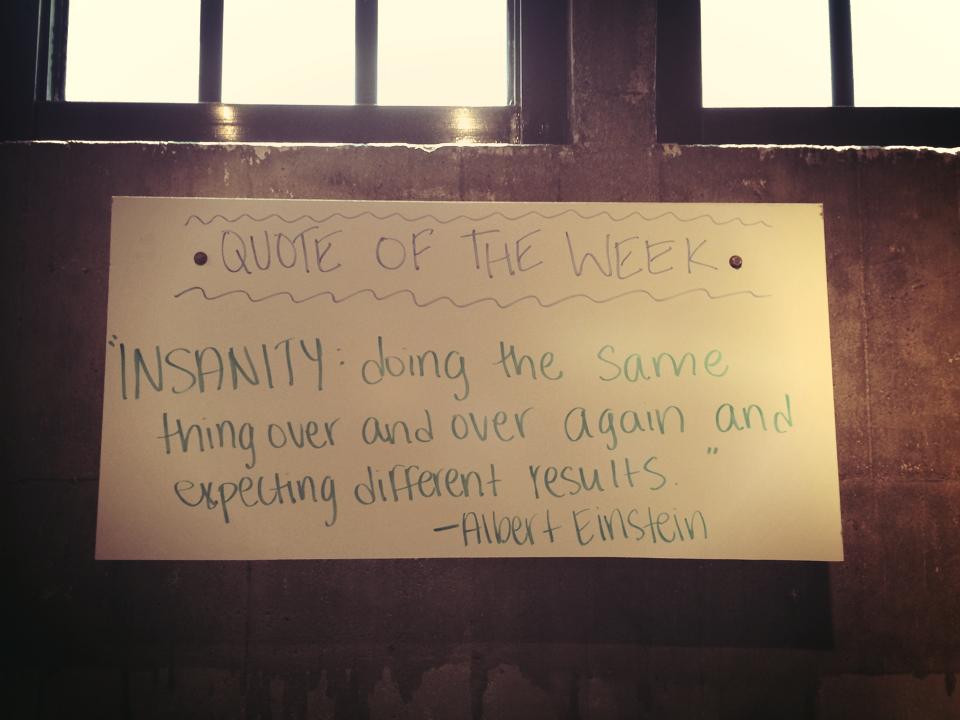 QUOTE OF THE WEEK
"INSANITY: doing the same
thing over and over again and
expecting different results."
-Albert Einstein